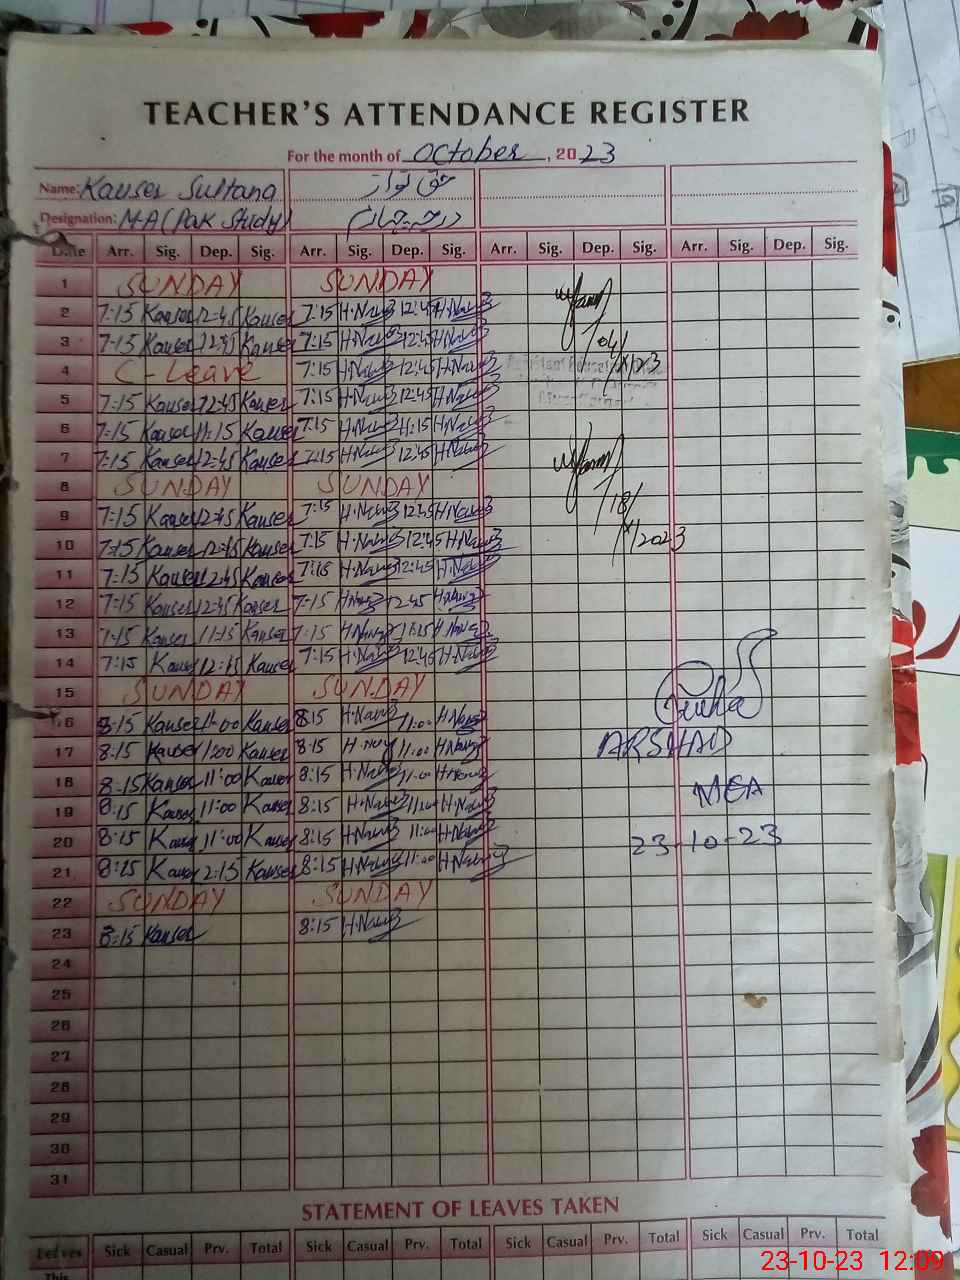 TEACHER'S ATTENDANCE REGISTER
For the month of October, 2023
Name: Kauser Sultana حق نواز
Designation: M-A (Pak Study) درجہ چہارم
Date Arr. Sig. Dep. Sig. Arr. Sig. Dep. Sig. Arr. Sig. Dep. Sig. Arr. Sig. Dep. Sig.
1 SUNDAY SUNDAY
2 7:15 Kauser 12:45 Kauser 7:15 H.Nawaz 12:45 H.Nawaz
3 7:15 Kauser 12:45 Kauser 7:15 H.Nawaz 12:45 H.Nawaz
4 C-Leave 7:15 H.Nawaz 12:45 H.Nawaz
5 7:15 Kauser 12:45 Kauser 7:15 H.Nawaz 12:45 H.Nawaz
6 7:15 Kauser 11:15 Kauser 7:15 H.Nawaz 11:15 H.Nawaz
7 7:15 Kauser 12:45 Kauser 7:15 H.Nawaz 12:45 H.Nawaz
8 SUNDAY SUNDAY
9 7:15 Kauser 12:45 Kauser 7:15 H.Nawaz 12:45 H.Nawaz
10 7:15 Kauser 12:45 Kauser 7:15 H.Nawaz 12:45 H.Nawaz
11 7:15 Kauser 12:45 Kauser 7:15 H.Nawaz 12:45 H.Nawaz
12 7:15 Kauser 12:45 Kauser 7:15 H.Nawaz 12:45 H.Nawaz
13 7:15 Kauser 11:15 Kauser 7:15 H.Nawaz 11:15 H.Nawaz
14 7:15 Kauser 12:45 Kauser 7:15 H.Nawaz 12:45 H.Nawaz
15 SUNDAY SUNDAY
16 8:15 Kauser 11:00 Kauser 8:15 H.Nawaz 11:00 H.Nawaz
17 8:15 Kauser 11:00 Kauser 8:15 H.Nawaz 11:00 H.Nawaz
ARSHAD
18 8:15 Kauser 11:00 Kauser 8:15 H.Nawaz 11:00 H.Nawaz
MEA
19 8:15 Kauser 11:00 Kauser 8:15 H.Nawaz 11:00 H.Nawaz
20 8:15 Kauser 11:00 Kauser 8:15 H.Nawaz 11:00 H.Nawaz
23-10-23
21 8:15 Kauser 2:15 Kauser 8:15 H.Nawaz 11:00 H.Nawaz
22 SUNDAY SUNDAY
23 8:15 Kauser 8:15 H.Nawaz
24
25
26
27
28
29
30
31
STATEMENT OF LEAVES TAKEN
Leaves Sick Casual Prv. Total Sick Casual Prv. Total Sick Casual Prv. Total Sick Casual Prv. Total
This
23-10-23 12:09